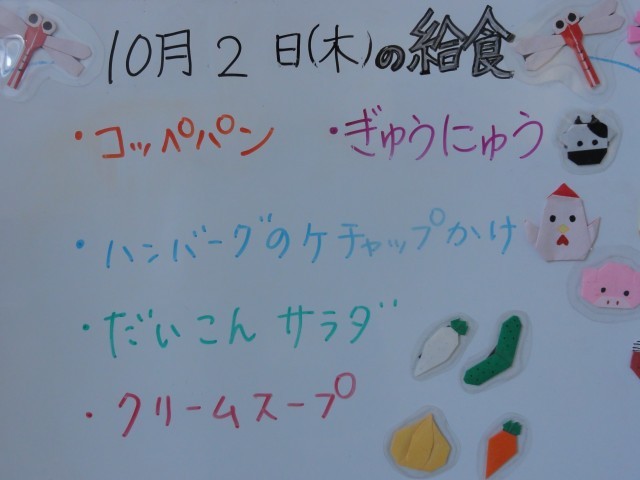 10月2日(木)の給食
・コッペパン ・ぎゅうにゅう
・ハンバーグのケチャップかけ
・だいこんサラダ
・クリームスープ